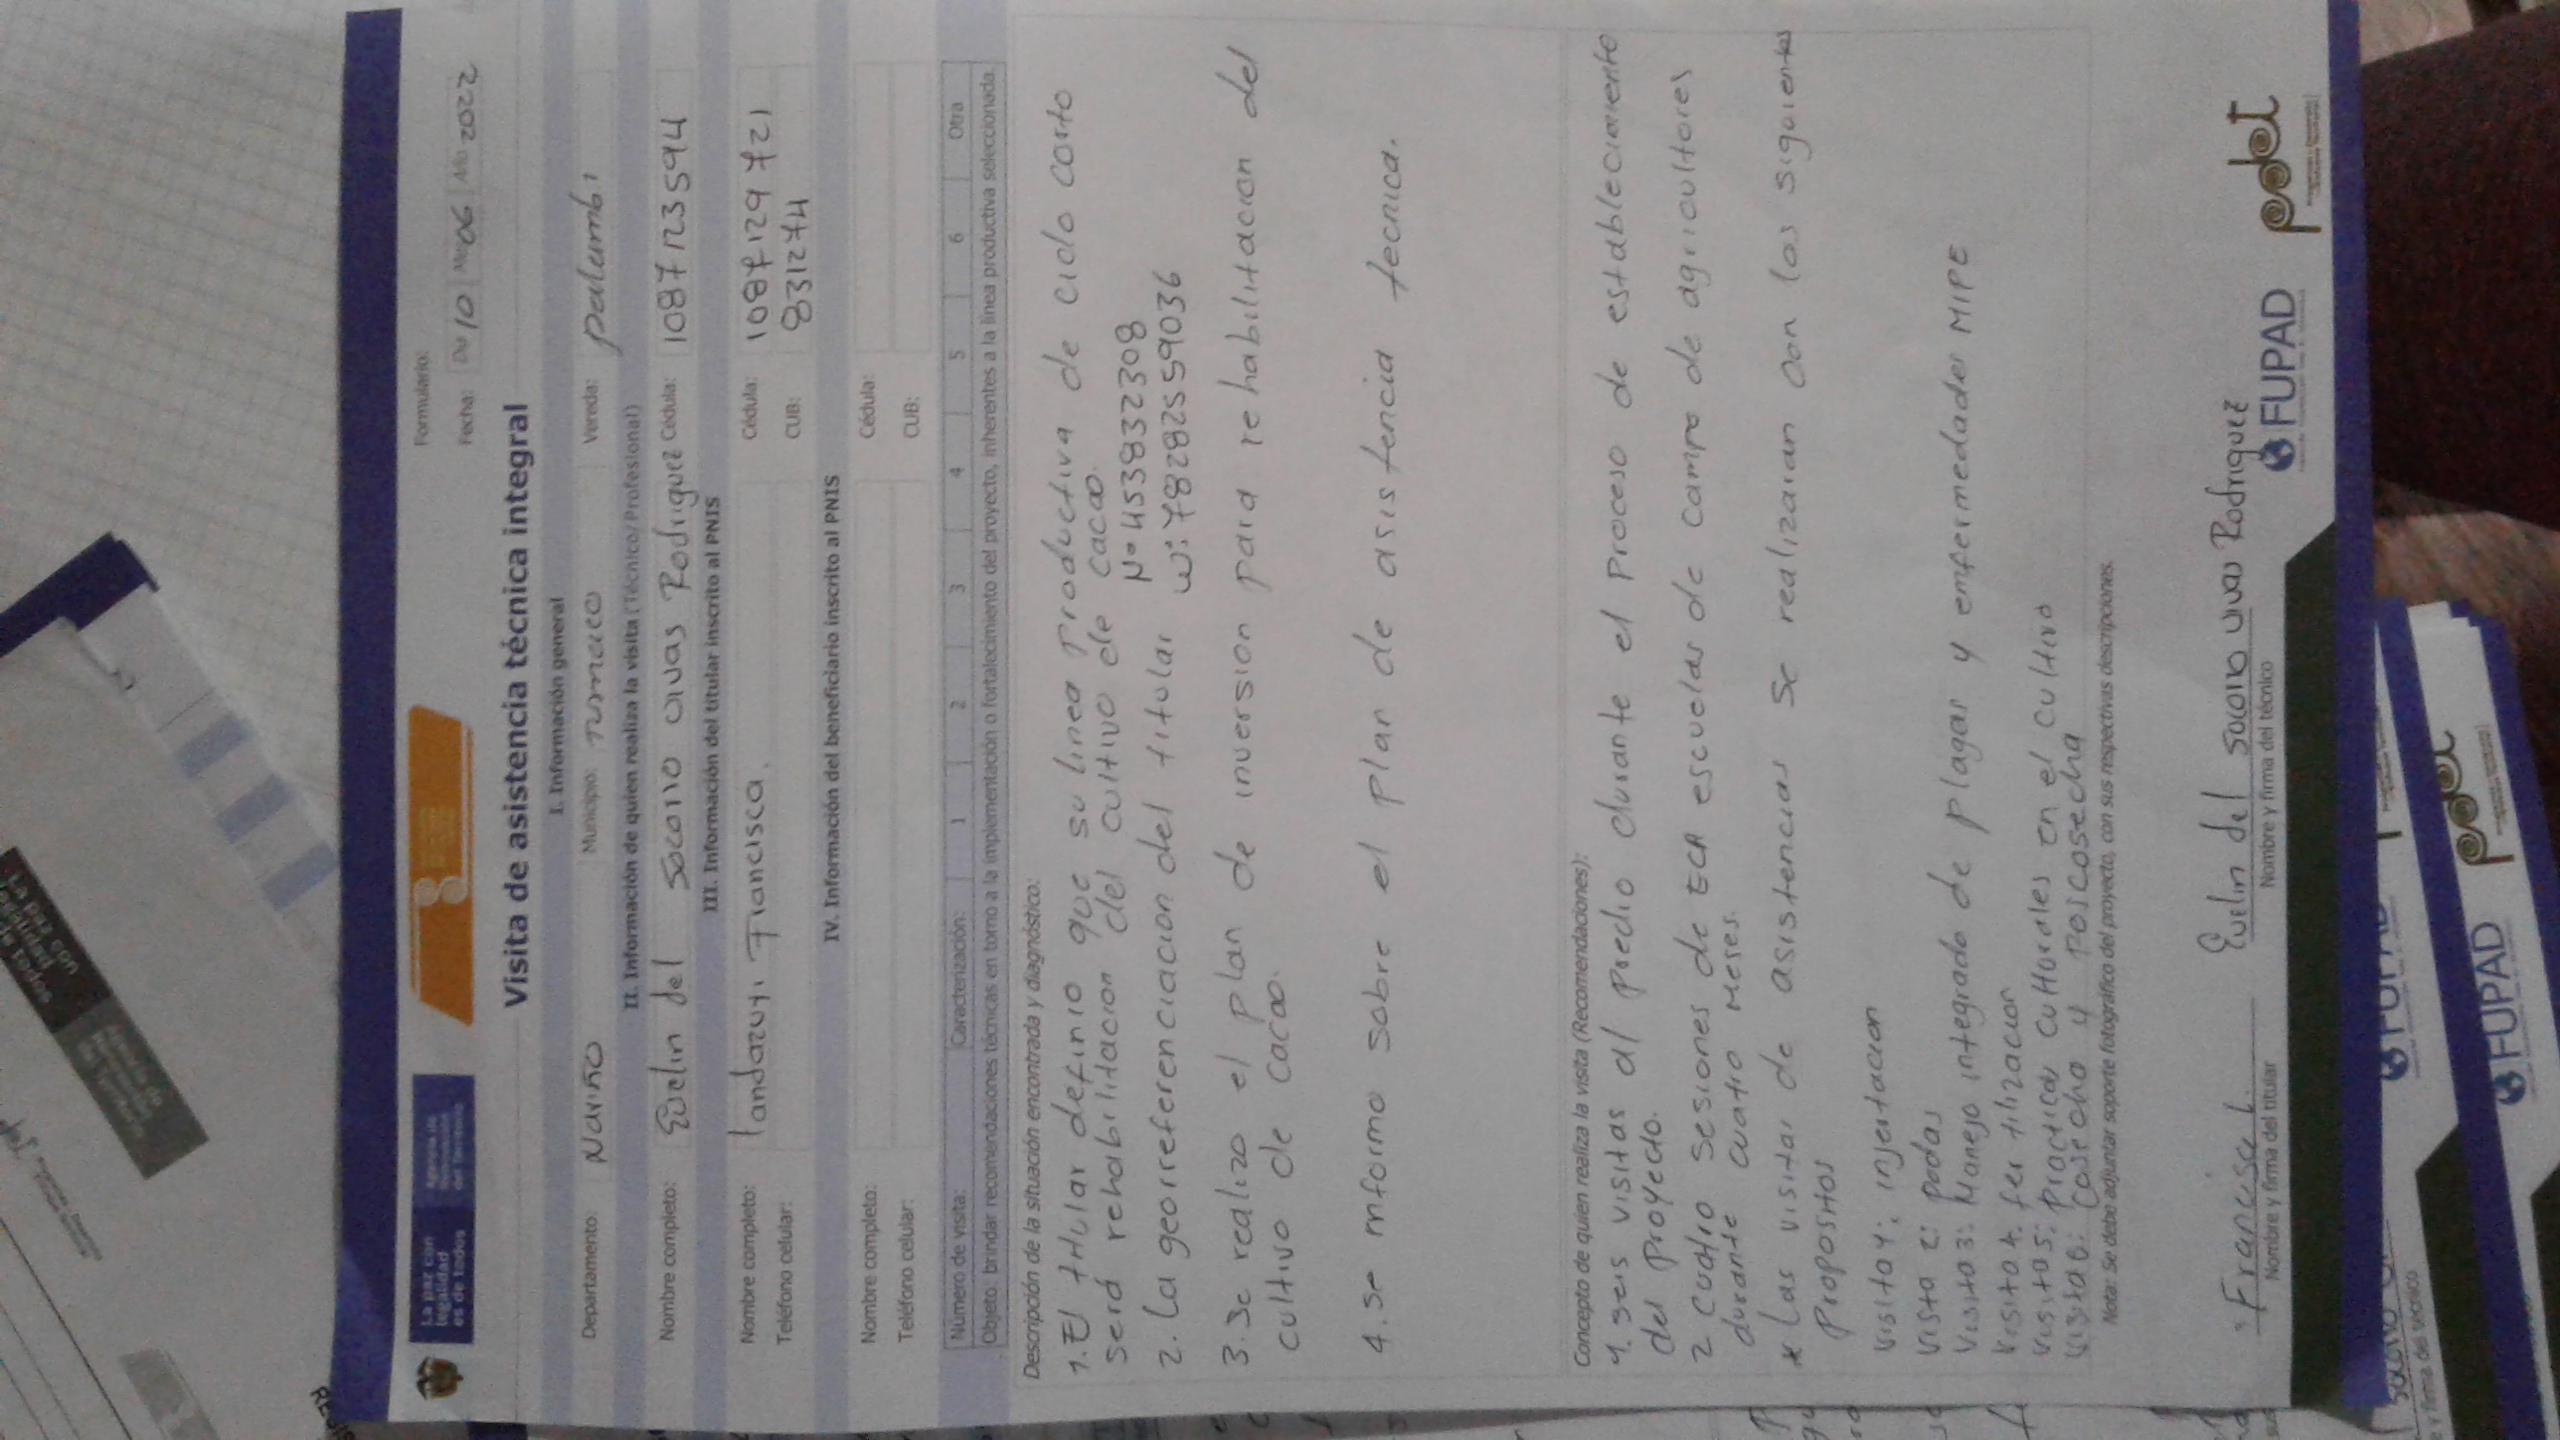 La paz con
legalidad
es de todos
Agencia de
Renovación
del Territorio
Formulario:
Fecha: Día 10 Mes 06 Año 2022
Visita de asistencia técnica integral
I. Información general
Departamento: Nariño Municipio: Tumaco Vereda: palambi
II. Información de quien realiza la visita (Técnico/Profesional)
Nombre completo: Evelin del Socorro vivas Rodriguez Cédula: 1087123594
III. Información del titular inscrito al PNIS
Nombre completo: landazuri Francisca. Cédula: 1087129721
Teléfono celular: CUB: 831274
IV. Información del beneficiario inscrito al PNIS
Nombre completo: Cédula:
Teléfono celular: CUB:
Número de visita: Caracterización: 1 2 3 4 5 6 Otra
Objeto: brindar recomendaciones técnicas en torno a la implementación o fortalecimiento del proyecto, inherentes a la línea productiva seleccionada.
Descripción de la situación encontrada y diagnóstico:
1. El titular definio que su linea productiva de ciclo corto
será rehabilitacion del cultivo de cacao.
N° 453832308
2. La georreferenciacion del titular W: 78282559036
3. Se realizo el plan de inversion para rehabilitacion del
cultivo de cacao.
4. se informo sobre el plan de asistencia tecnica.
Concepto de quien realiza la visita (Recomendaciones):
1. seis visitas al predio durante el proceso de establecimiento
del proyecto.
2 cuatro sesiones de ECA escuelas de campo de agricultores
durante cuatro meses.
* Las visitas de asistencias se realizaran con los siguientes
propositos
visita 1: injertacion
vista 2: podas
visita 3: Manejo integrado de plagas y enfermedades MIPE
visita 4. fertilizacion
visita 5: practicas culturales en el cultivo
visita 6: cosecha y poscosecha
Nota: Se debe adjuntar soporte fotográfico del proyecto, con sus respectivas descripciones.
Francisca L. Evelin del socorro vivas Rodriguez
Nombre y firma del titular Nombre y firma del técnico
FUPAD pdet
socorro
y firma del técnico
FUPAD
FUPAD pdet
La paz con
legalidad
es de todos